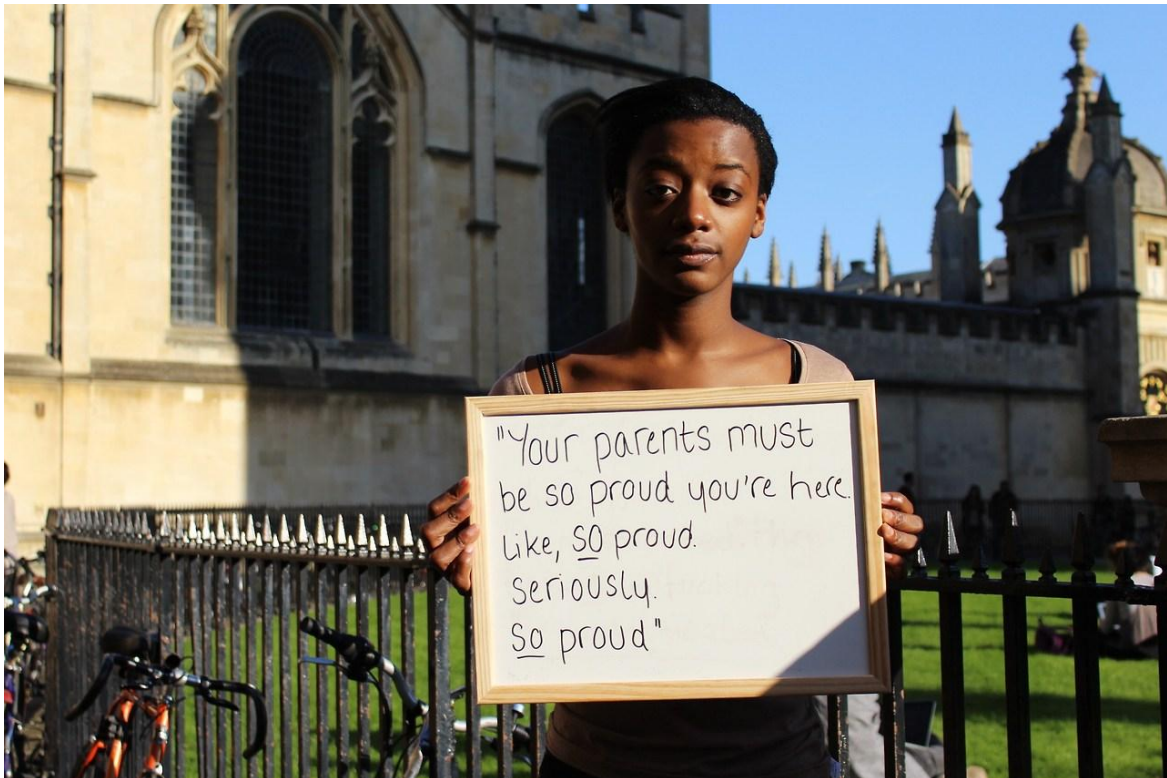 "Your parents must
be so proud you're here.
Like, SO proud.
seriously.
So proud"